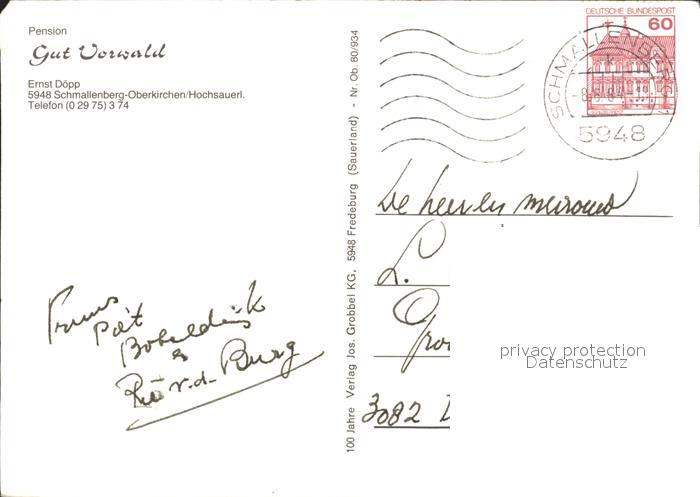 Pension
Gut Vorwald
Ernst Döpp
5948 Schmallenberg-Oberkirchen/Hochsauerl.
Telefon (0 29 75) 3 74
Pat
&
v.d. Burg
100 Jahre Verlag Jos. Grobbel KG, 5948 Fredeburg (Sauerland) - Nr. Ob. 80/934
DEUTSCHE BUNDESPOST
60
SCHMALLENBERG
5948
De heer en
L.
3082
privacy protection
Datenschutz